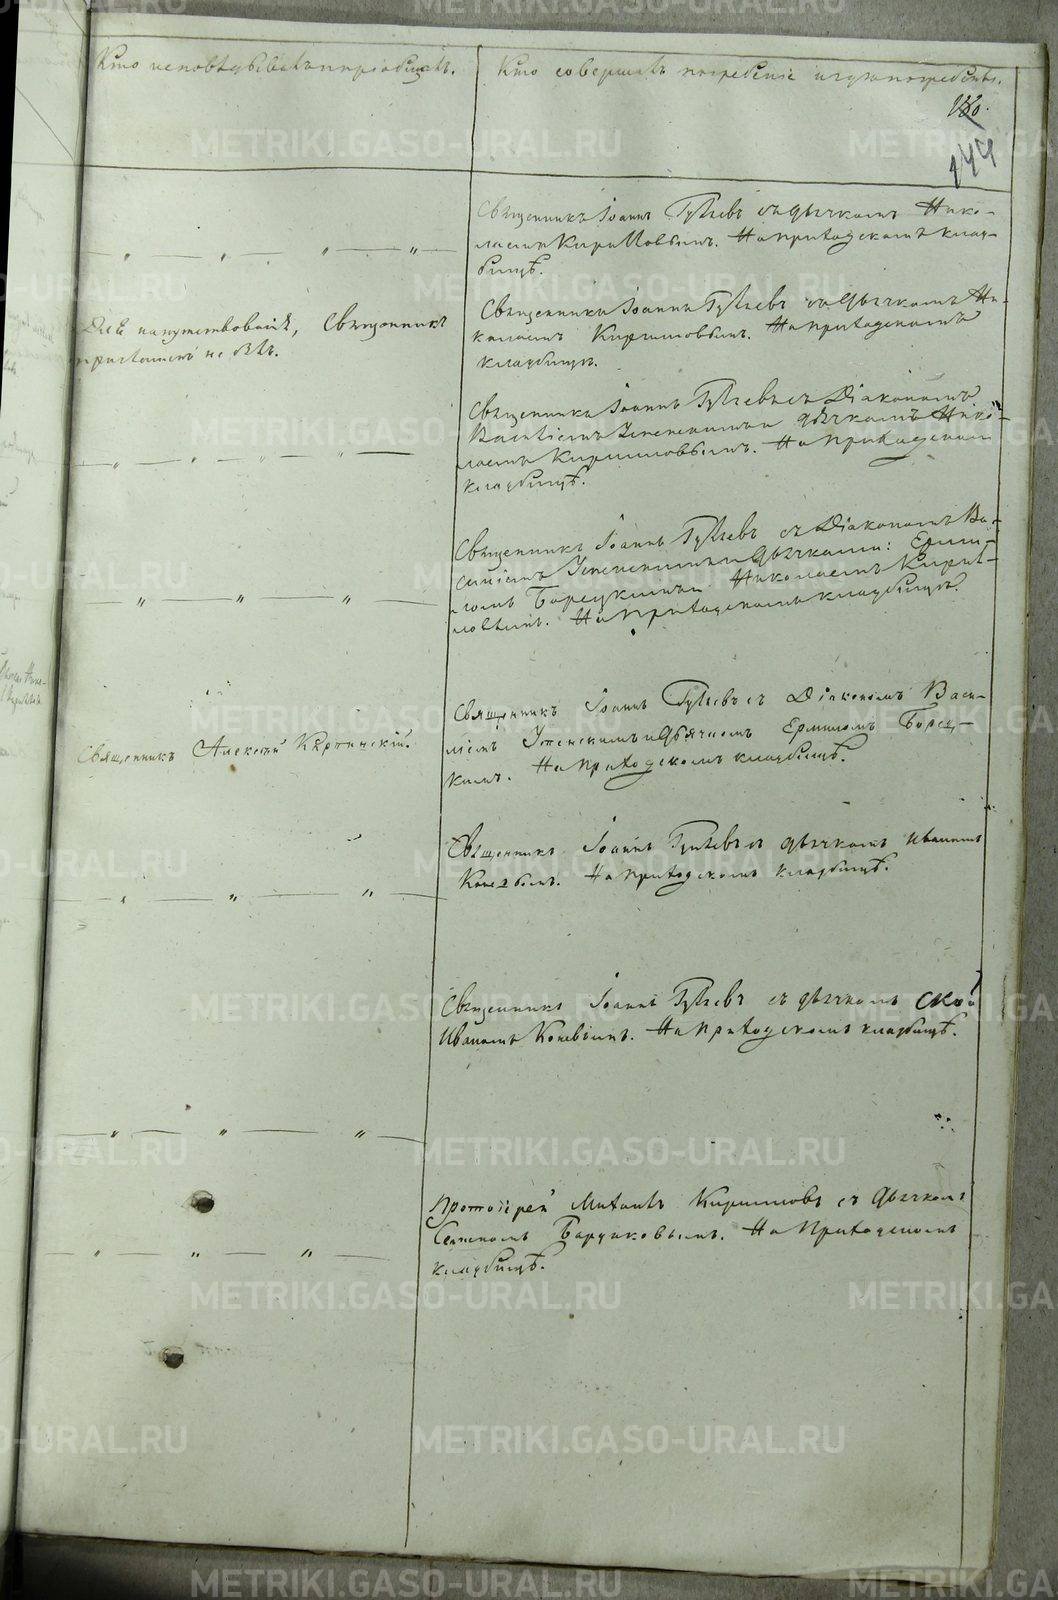 Кто исповѣдывалъ и пріобщалъ.
Кто совершалъ погребеніе и гдѣ погребены.
144
Священникъ Іоаннъ Гуляевъ съ дьячкомъ Нико-
лаемъ Кирилловымъ. На приходскомъ клад-
бищѣ.
Священникъ Іоаннъ Гуляевъ съ дьячкомъ Ни-
колаемъ Кирилловымъ. На приходскомъ
кладбищѣ.
Для напутствованія, Священникъ
приглашенъ не былъ.
Священникъ Іоаннъ Гуляевъ съ Діакономъ
Василіемъ Успенскимъ и дьячкомъ Нико-
лаемъ Кирилловымъ. На приходскомъ
кладбищѣ.
Священникъ Іоаннъ Гуляевъ съ Діакономъ Ва-
силіемъ Успенскимъ и дьячками: Ерми-
ломъ Борецкимъ и Николаемъ Кирил-
ловымъ. На приходскомъ кладбищѣ.
Священникъ Алексѣй Карпинскій.
Священникъ Іоаннъ Гуляевъ съ Діакономъ Васи-
ліемъ Успенскимъ и дьячкомъ Ермиломъ Борец-
кимъ. На приходскомъ кладбищѣ.
Священникъ Іоаннъ Гуляевъ съ дьячкомъ Иваномъ
Коневымъ. На приходскомъ кладбищѣ.
Священникъ Іоаннъ Гуляевъ съ дьячкомъ
Иваномъ Коневымъ. На приходскомъ кладбищѣ.
Протоіерей Михаилъ Кирилловъ съ дьячкомъ
Бардаковымъ. На приходскомъ
кладбищѣ.
METRIKI.GASO-URAL.RU